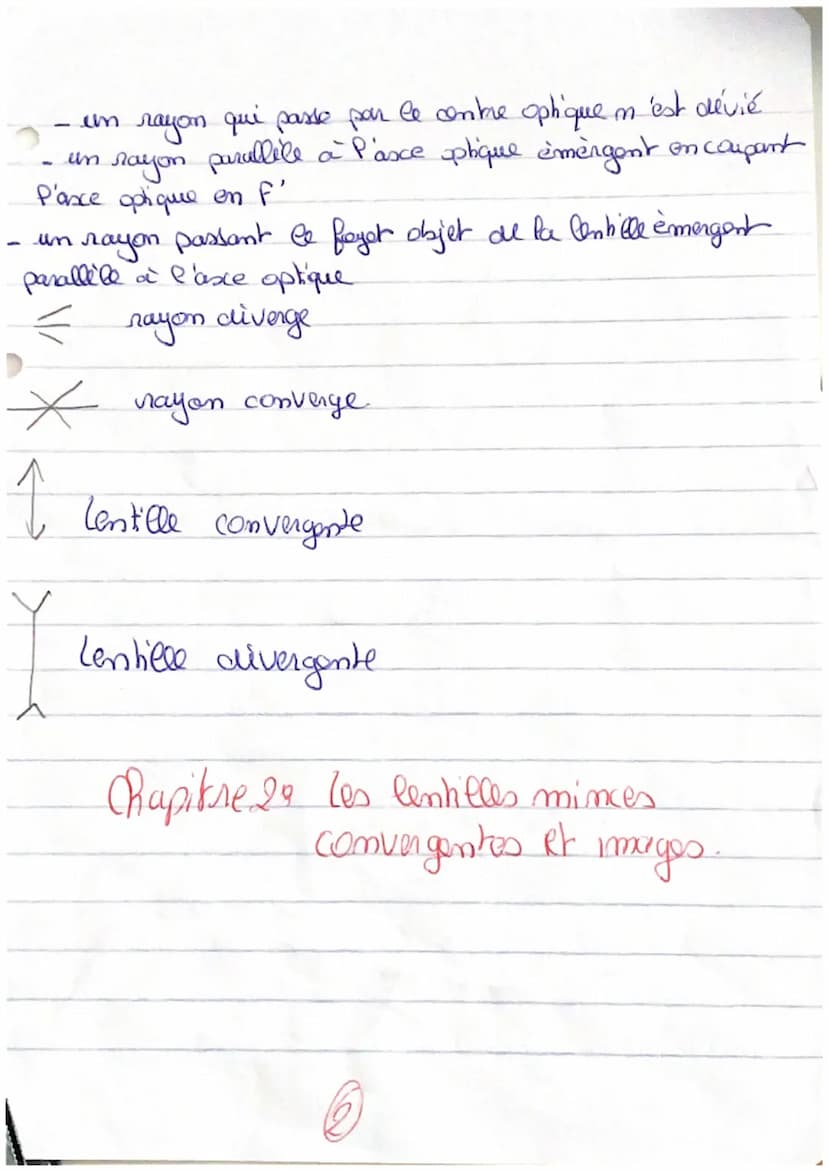 - un rayon qui passe par le centre optique n'est dévié
- un rayon parallèle à l'axe optique émèrgent en coupant
l'axe optique en F'
- un rayon passant le foyer objet de la lentille èmergent
parallèle à l'axe optique
rayon diverge
rayon converge
lentille convergente
lentille divergente
Chapitre 29 les lentilles minces
convergentes et images.
2